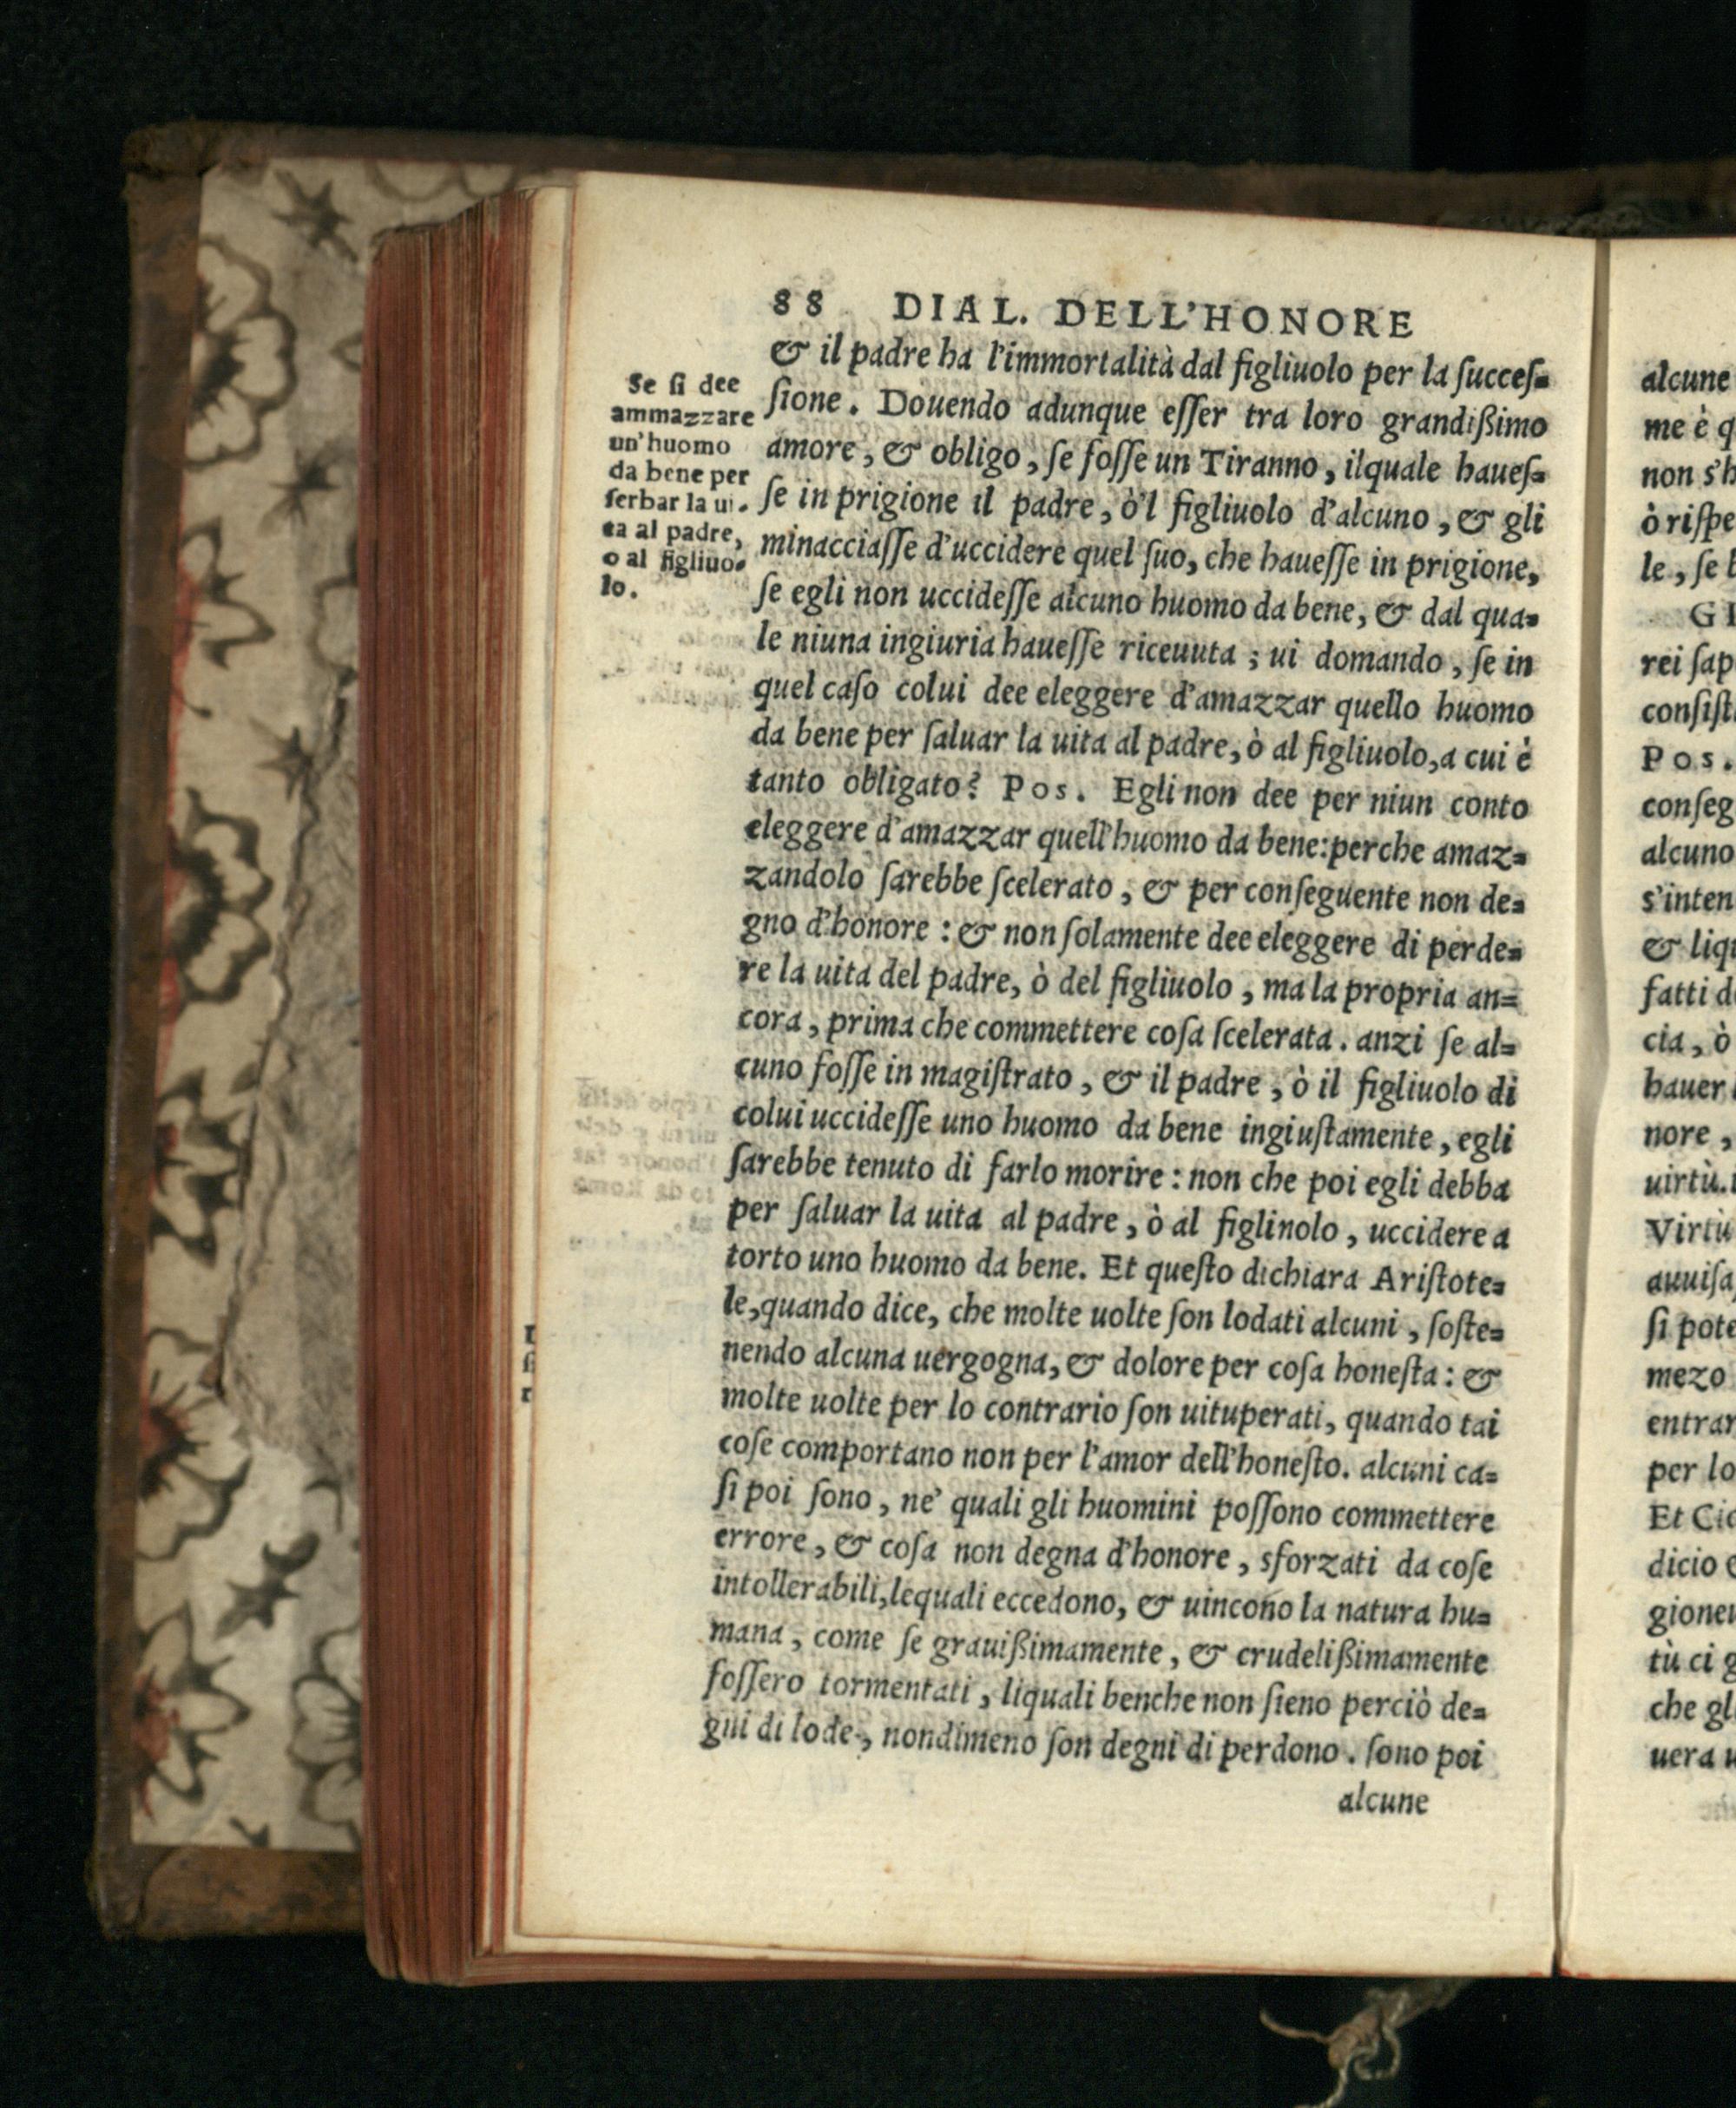 88 DIAL. DELL'HONORE
Se ſi dee
ammazzare
un'huomo
da bene per
ſerbar la ui-
ta al padre,
o al figliuo-
lo.
& il padre ha l'immortalità dal figliuolo per la ſucceſ=
ſione. Douendo adunque eſſer tra loro grandißimo
amore, & obligo, ſe foſſe un Tiranno, ilquale haueſ=
ſe in prigione il padre, ò'l figliuolo d'alcuno, & gli
minacciaſſe d'uccidere quel ſuo, che haueſſe in prigione,
ſe egli non uccideſſe alcuno huomo da bene, & dal qua=
le niuna ingiuria haueſſe riceuuta; ui domando, ſe in
quel caſo colui dee eleggere d'amazzar quello huomo
da bene per ſaluar la uita al padre, ò al figliuolo, a cui è
tanto obligato? Pos. Egli non dee per niun conto
eleggere d'amazzar quell'huomo da bene: perche amaz=
zandolo ſarebbe ſcelerato, & per conſeguente non de=
gno d'honore: & non ſolamente dee eleggere di perde=
re la uita del padre, ò del figliuolo, ma la propria an=
cora, prima che commettere coſa ſcelerata. anzi ſe al=
cuno foſſe in magiſtrato, & il padre, ò il figliuolo di
colui uccideſſe uno huomo da bene ingiuſtamente, egli
ſarebbe tenuto di farlo morire: non che poi egli debba
per ſaluar la uita al padre, ò al figlinolo, uccidere a
torto uno huomo da bene. Et queſto dichiara Ariſtote=
le, quando dice, che molte uolte ſon lodati alcuni, ſoſte=
nendo alcuna uergogna, & dolore per coſa honeſta: &
molte uolte per lo contrario ſon uituperati, quando tai
coſe comportano non per l'amor dell'honeſto. alcuni ca=
ſi poi ſono, ne' quali gli huomini poſſono commettere
errore, & coſa non degna d'honore, sforzati da coſe
intollerabili, lequali eccedono, & uincono la natura hu=
mana, come ſe grauißimamente, & crudelißimamente
foſſero tormentati, liquali benche non ſieno perciò de=
gni di lode, nondimeno ſon degni di perdono. ſono poi
alcune
alcune
me è q
non s'h
ò riſpe
le, ſe b
GI
rei ſap
conſiſt
Pos.
conſeg
alcuno
s'inten
& liqu
fatti d
cia, ò
hauer
nore,
uirtù.
Virtù
auuiſa
ſi pote
mezo
entrar
per lo
Et Cic
dicio
gione
tù ci g
che gl
uera u